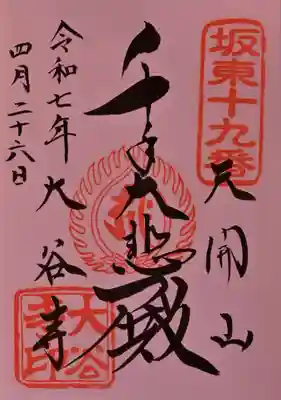 坂東十九番
天開山
千手大悲殿
大谷寺
令和七年
四月二十六日